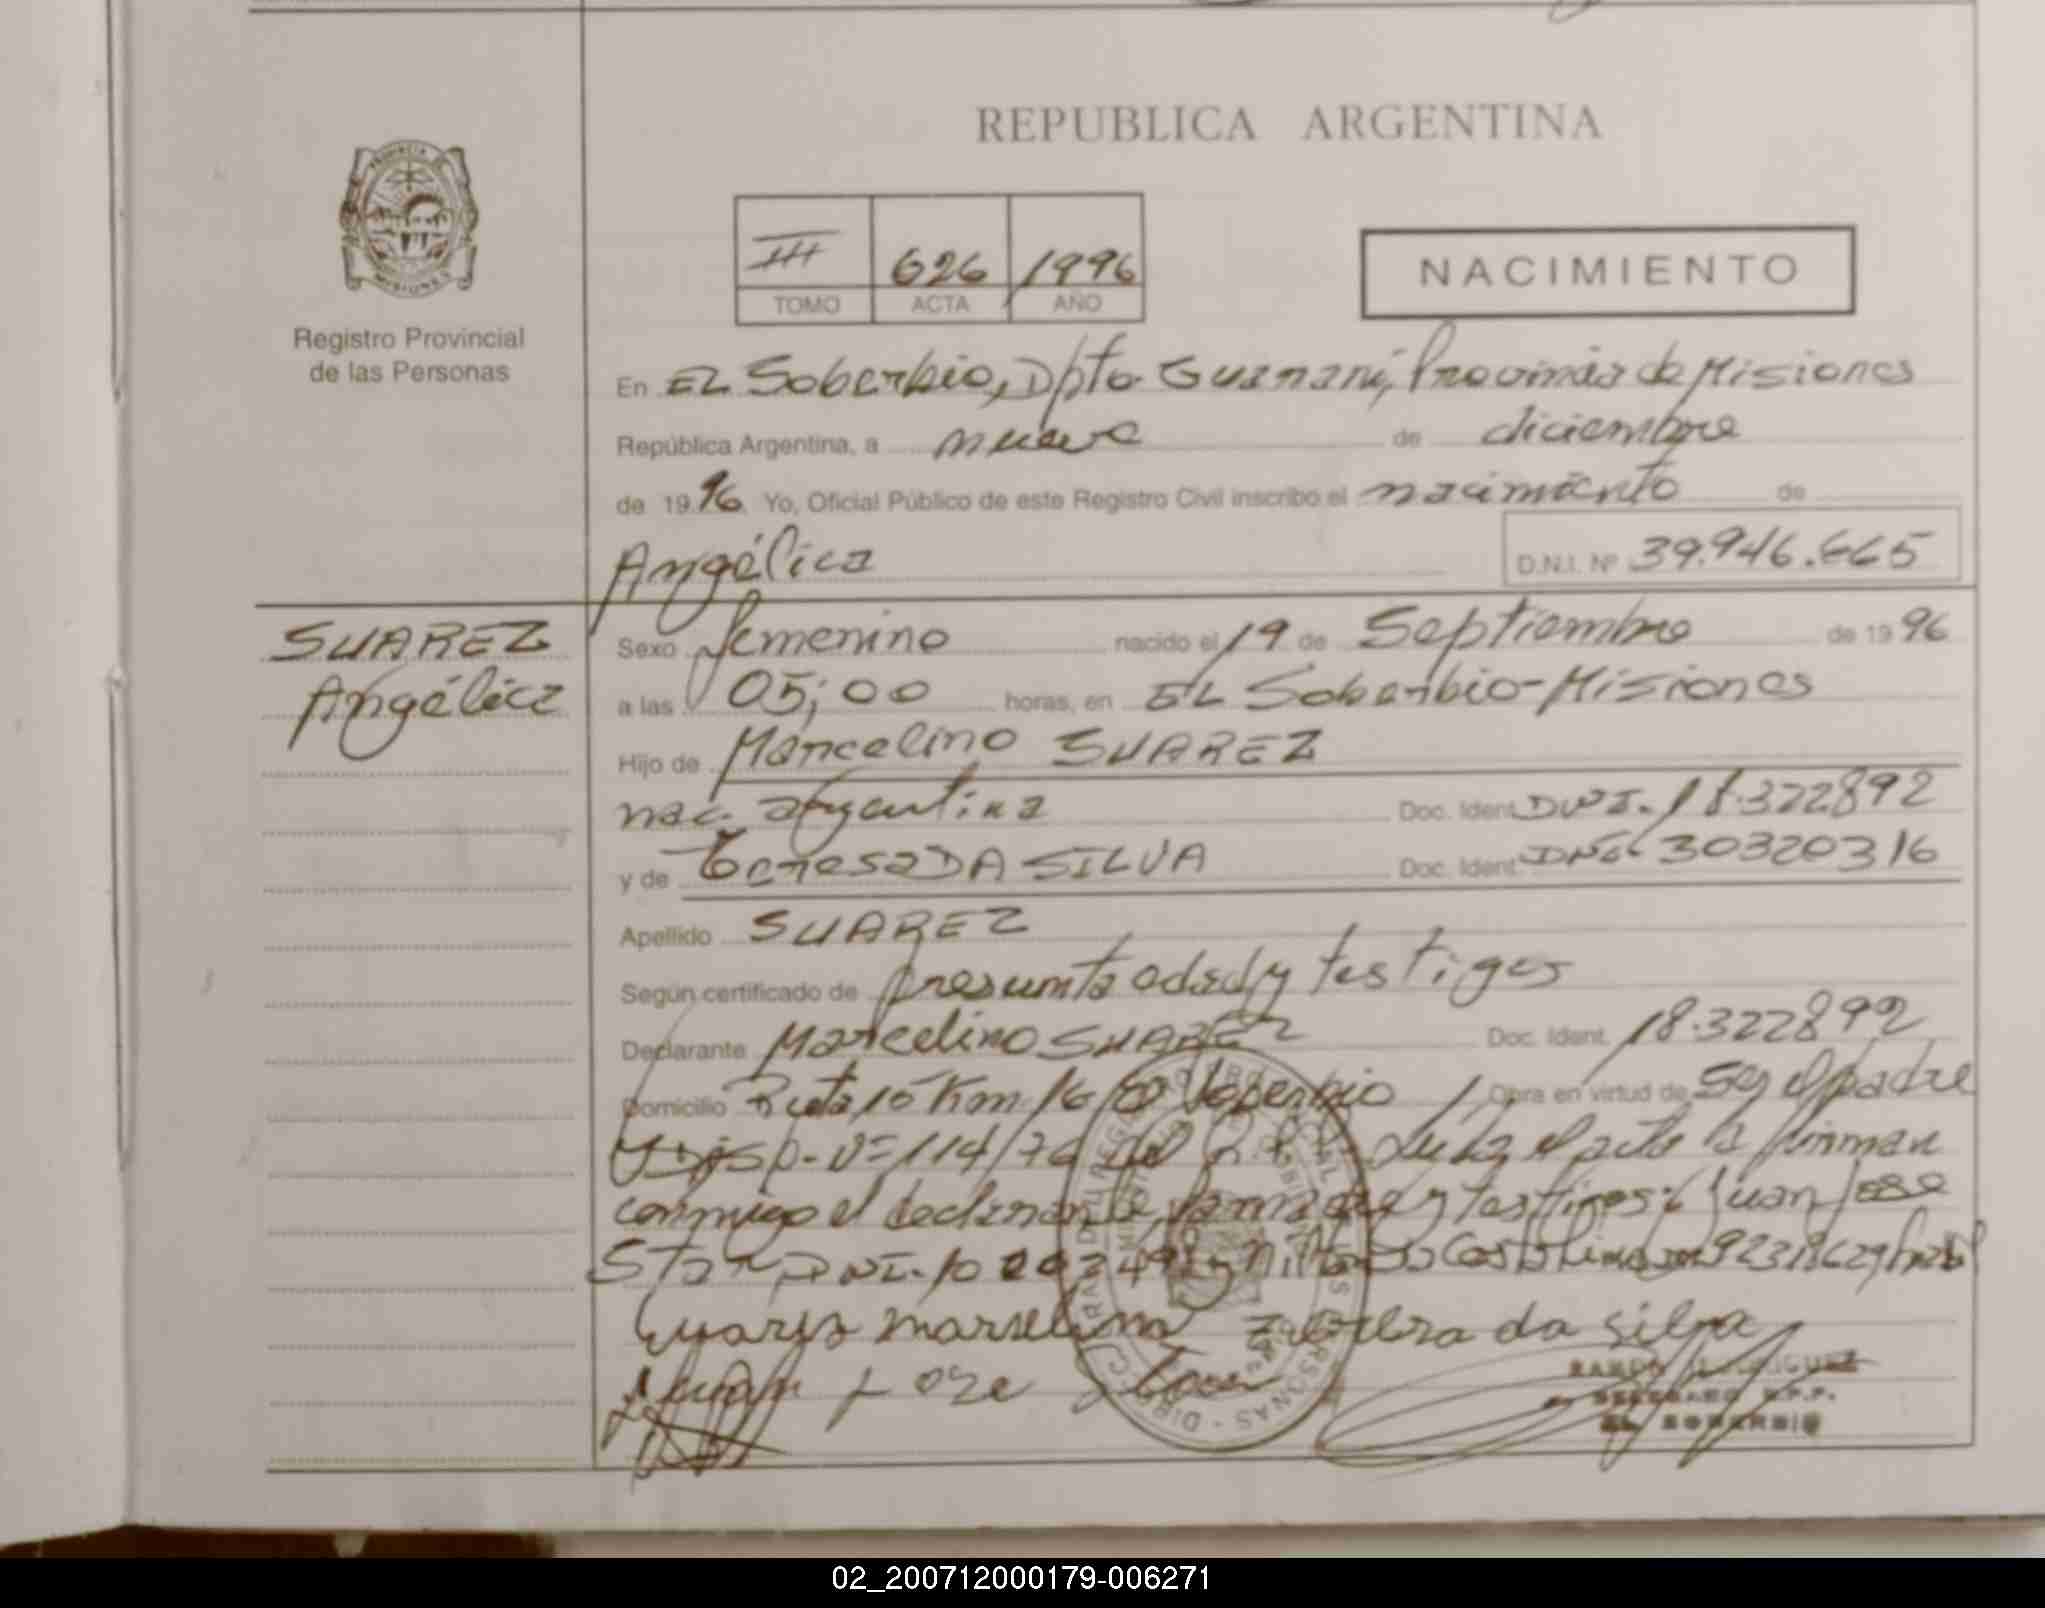 REPUBLICA ARGENTINA
PROVINCIA DE
MISIONES
Registro Provincial
de las Personas
III 626 1996
TOMO ACTA AÑO
NACIMIENTO
En EL Soberbio, Dpto Guaraní, Provincia de Misiones
República Argentina, a nueve de diciembre
de 1996 Yo, Oficial Público de este Registro Civil inscribo el nacimiento de
Angélica
D.N.I. Nº 39.946.665
SUAREZ
Angélica
Sexo femenino nacido el 19 de Septiembre de 1996
a las 05;00 horas, en EL Soberbio-Misiones
Hijo de Marcelino SUAREZ
nac. argentina Doc. Ident. DNI. 18.322892
y de Teresa DA SILVA Doc. Ident. DNI 30320316
Apellido SUAREZ
Según certificado de presunta edad y testigos
Declarante Marcelino SUAREZ Doc. Ident. 18.322892
Domicilio Ruta 15 Km 16 El Soberbio Obra en virtud de Ser el padre
y Disp. Nº 114/76 del Leída el acta la firman
conmigo el declarante, la madre y testigos: Juan Jose
DNI.
da silva
EL SOBERBIO
02_200712000179-006271